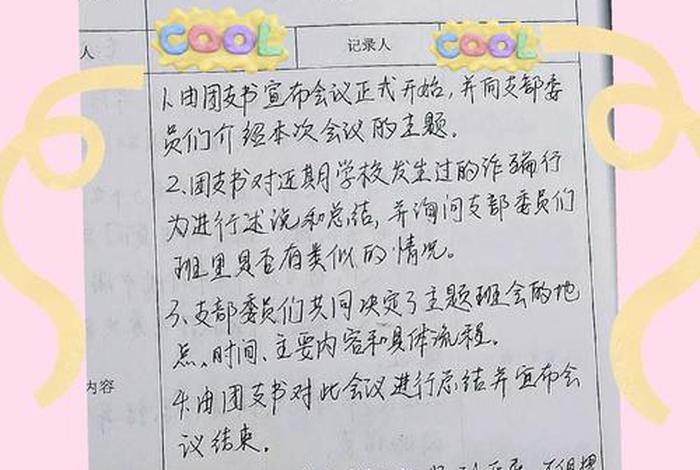 人 COOL 记录人 COOL
1.由团支书宣布会议正式开始,并向支部委
员们介绍本次会议的主题。
2.团支书对近期学校发生过的诈骗行
为进行述说和总结,并询问支部委员们
班里是否有类似的情况。
3、支部委员们共同决定了主题班会的地
点、时间、主要内容和具体流程。
内容
4.由团支书对此会议进行总结并宣布会
议结束。